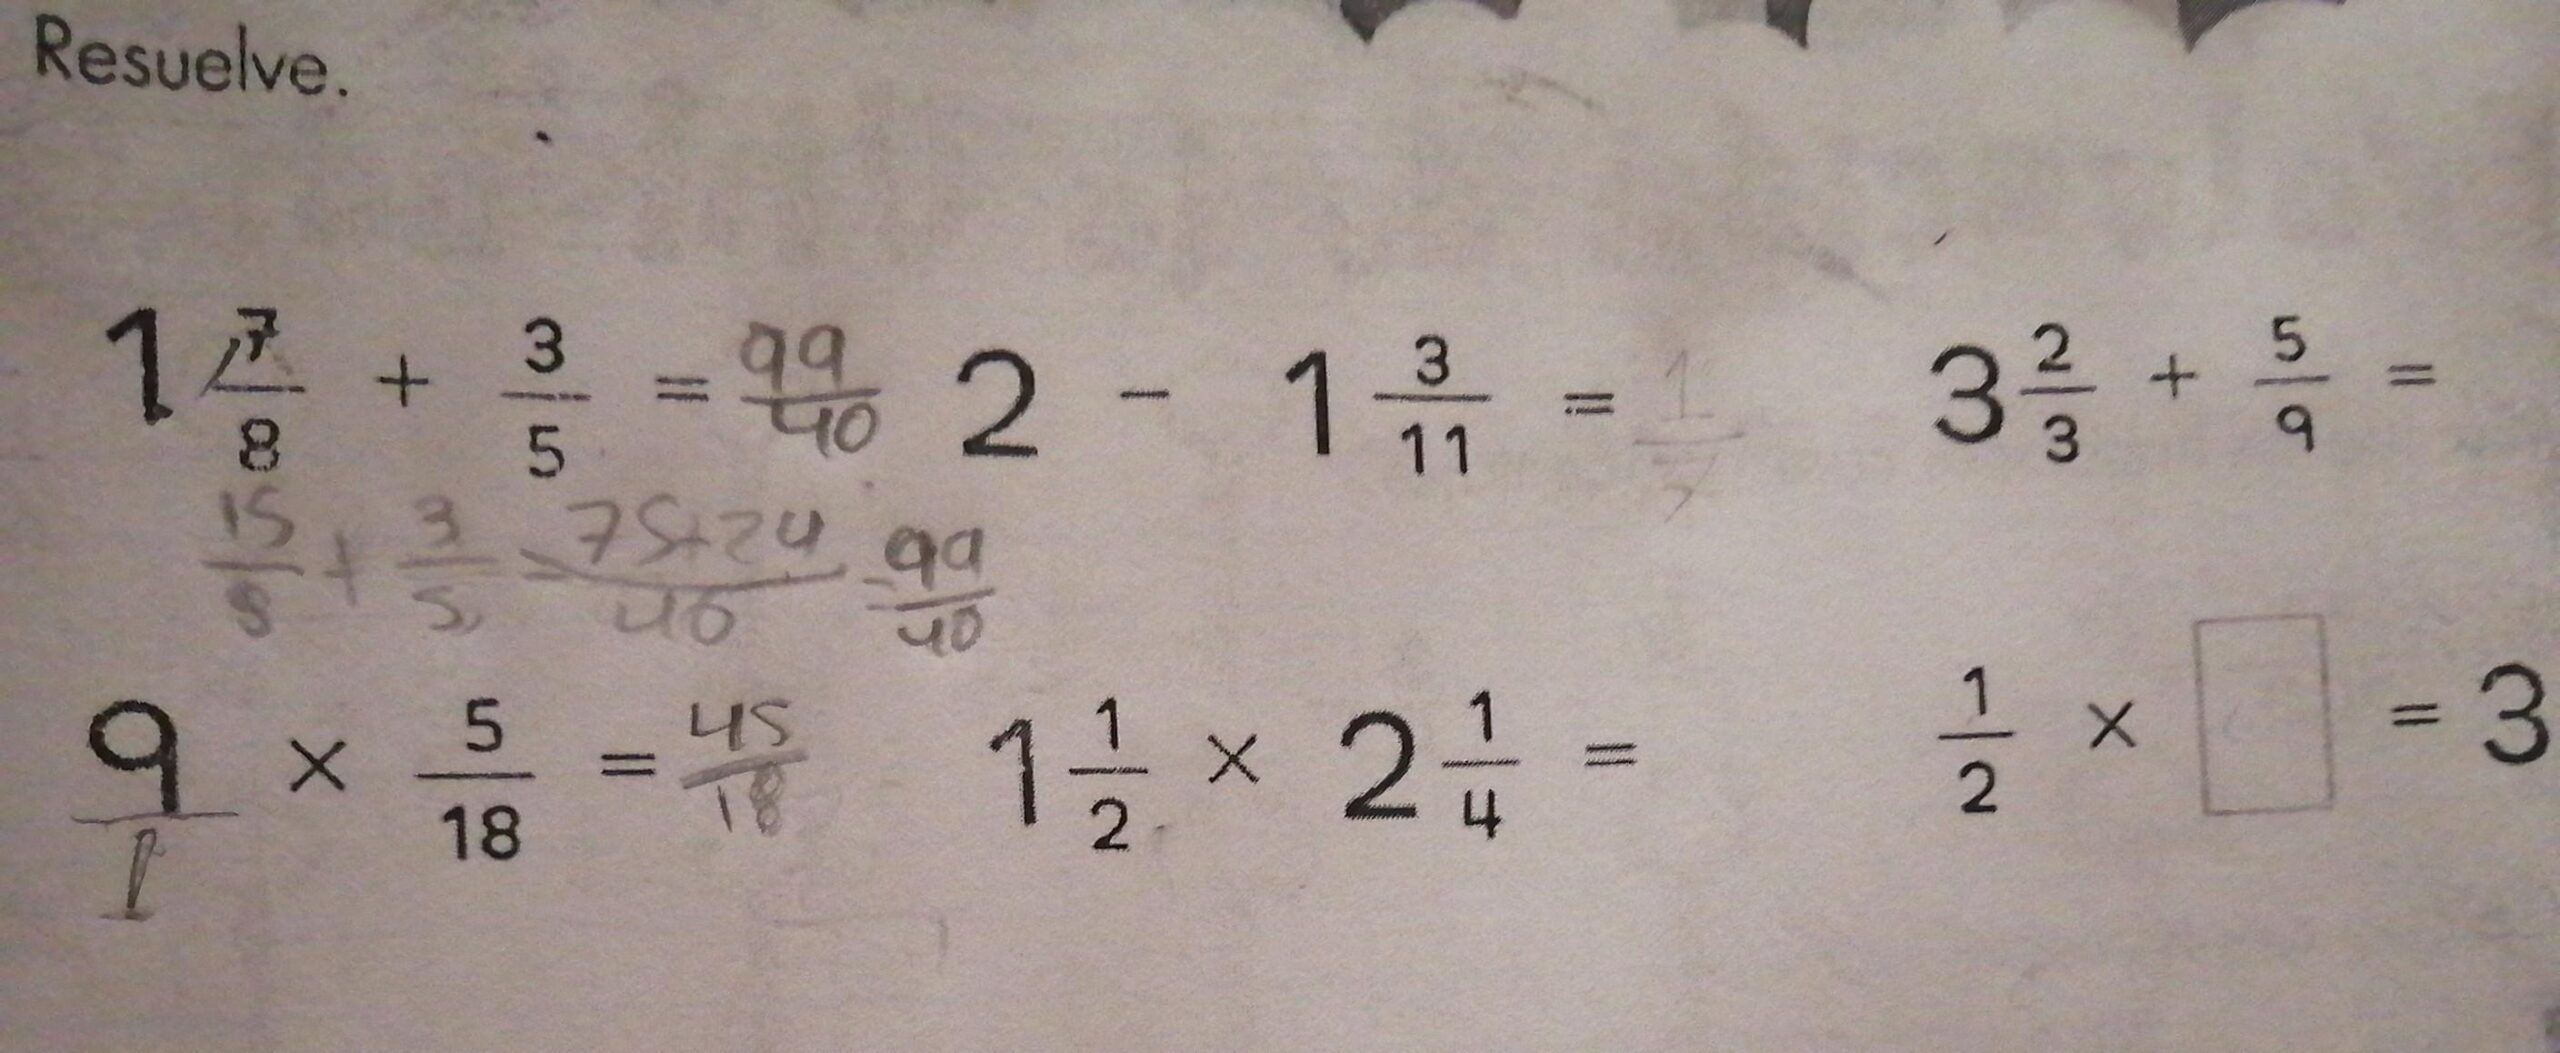 Resuelve.
1 7/8 + 3/5 = 99/40 2 - 1 3/11 = 3 2/3 + 5/9 =
15/8 + 3/5 = 75+24/40 = 99/40
9/1 × 5/18 = 45/18 1 1/2 × 2 1/4 = 1/2 × □ = 3